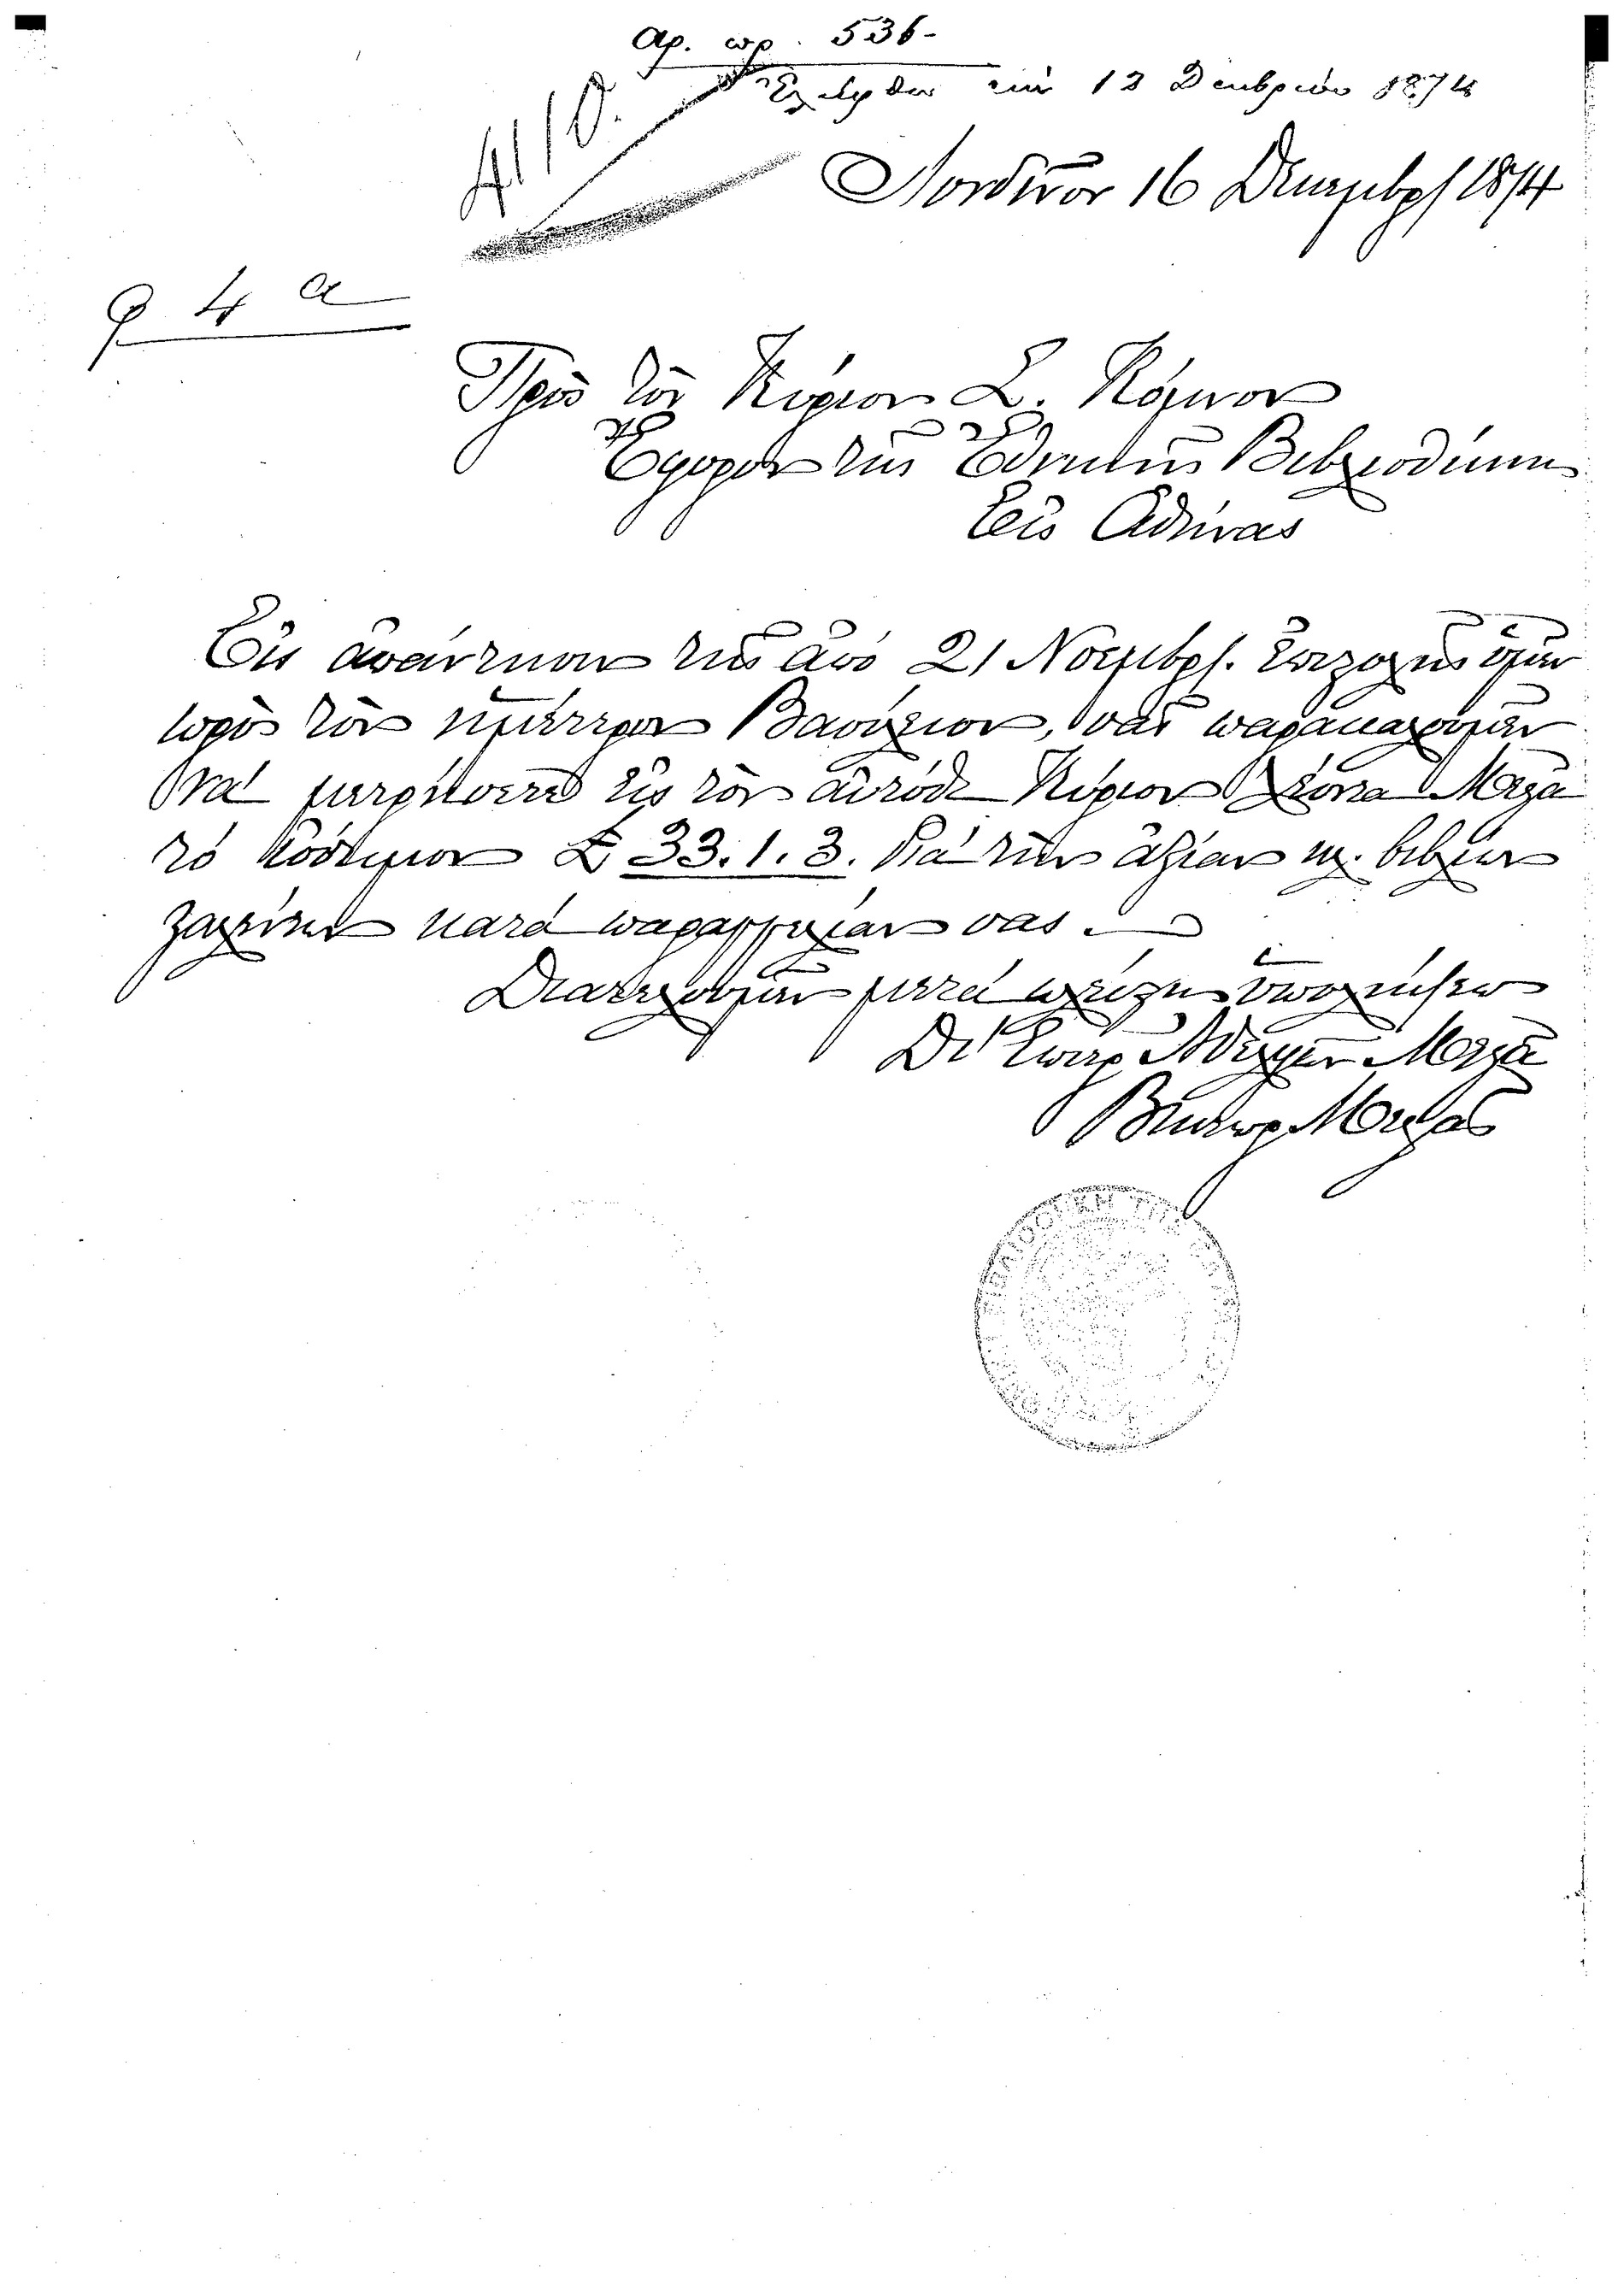 Αρ. πρ. 536-
Ελήφθη τῇ 12 Δεκεμβρίου 1874
Λονδῖνον 16 Δεκεμβρ/ 1874
g 4 a
Πρὸς τὸν Κύριον Σ. Κόμνον
Ἔφορον τῆς Ἐθνικῆς Βιβλιοθήκης
Εἰς Ἀθήνας
Εἰς ἀπάντησιν τῆς ἀπὸ 21 Νοεμβρ/. ἐπιστολῆς ὑμῶν
πρὸς τὸν ἡμέτερον Βασίλειον, σᾶς παρακαλοῦμεν
νὰ μετρήσετε εἰς τὸν αὐτόθι Κύριον Λέοντα Μελᾶ
τὸ κόστιμον £ 33.1.3. διὰ τὴν ἀξίαν βιβλίων
σταλέντων κατὰ παραγγελίαν σας.
Διατελοῦμεν μετὰ πλείστης ὑπολήψεως
Δι' Μελᾶ
Μελᾶς